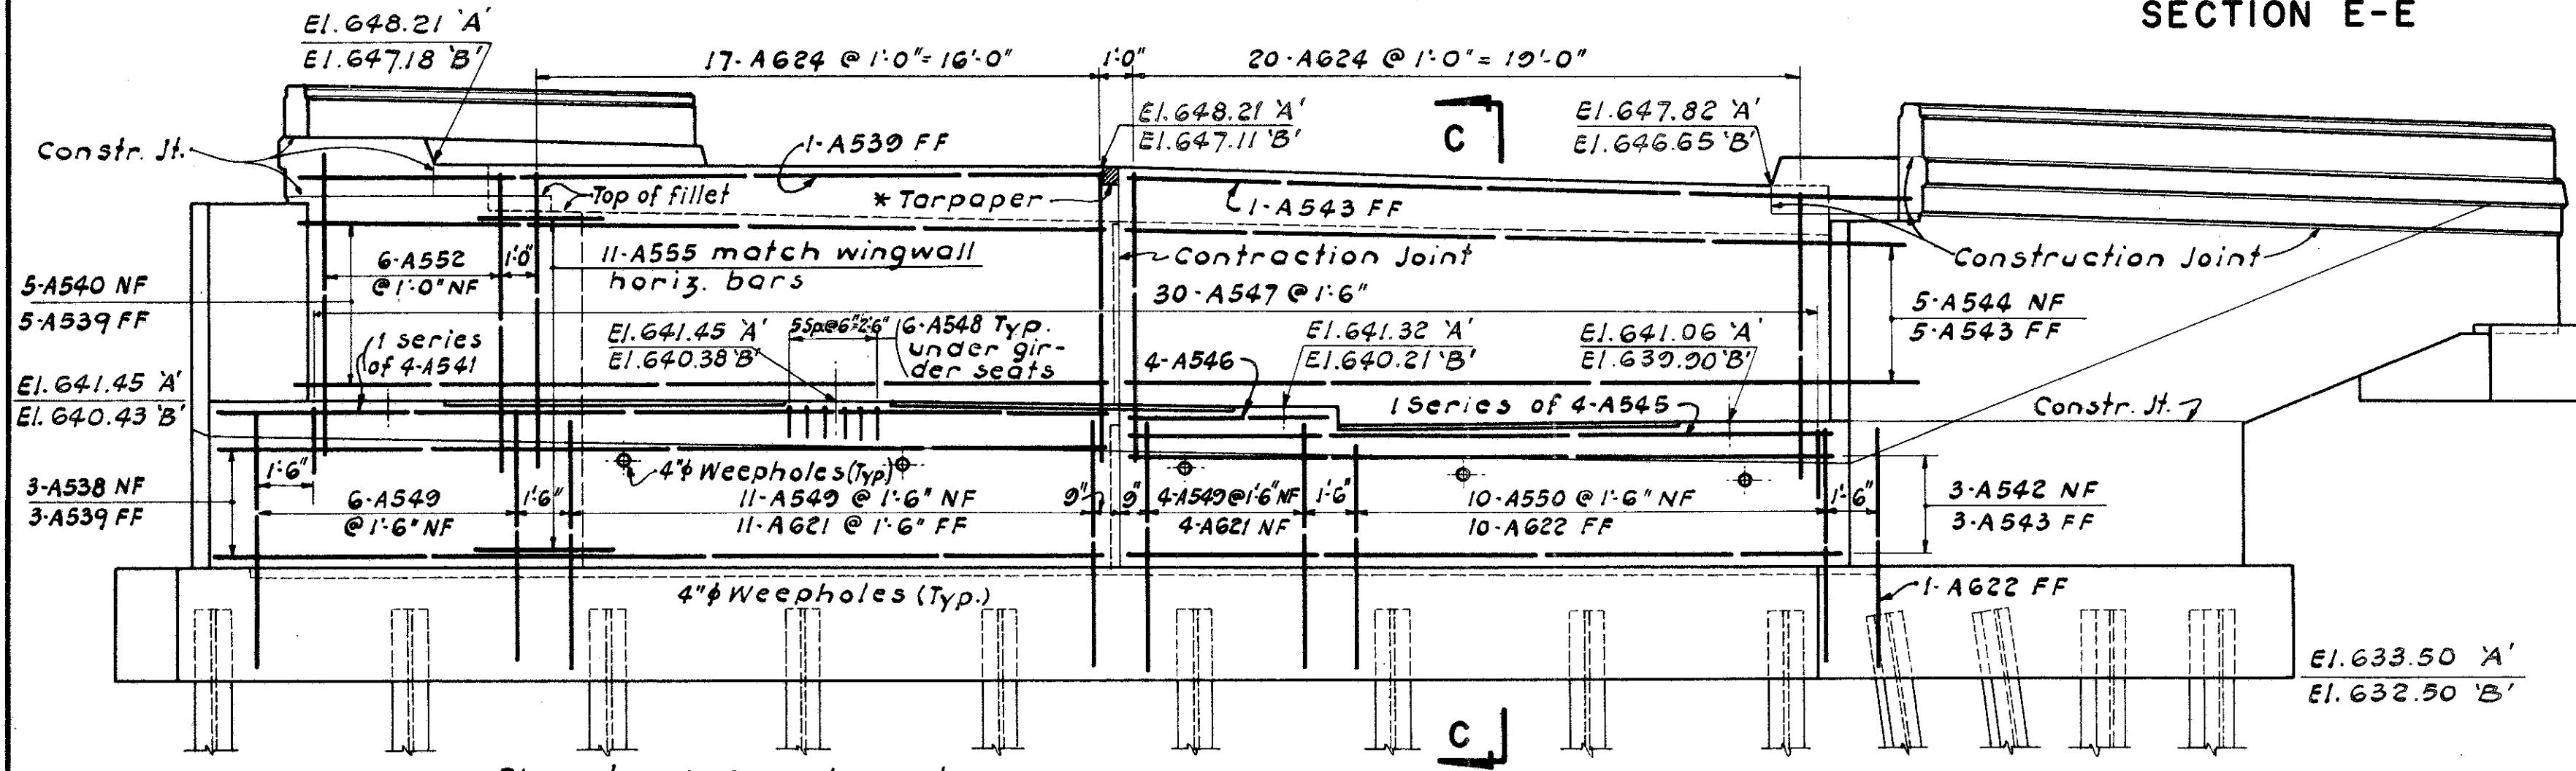 SECTION E-E
El. 648.21 'A'
El. 647.18 'B'
17-A624 @ 1'-0" = 16'-0"
1'-0"
20-A624 @ 1'-0" = 19'-0"
El. 648.21 'A'
El. 647.11 'B'
C
El. 647.82 'A'
El. 646.65 'B'
Constr. Jt.
1-A539 FF
Top of fillet
* Tarpaper
1-A543 FF
6-A552
@ 1'-0" NF
1'-0"
11-A555 match wingwall
horiz. bars
Contraction Joint
Construction Joint
5-A540 NF
5-A539 FF
30-A547 @ 1'-6"
5-A544 NF
5-A543 FF
1 series
of 4-A541
El. 641.45 'A'
El. 640.38 'B'
5 Sp. @ 6" = 2'-6"
6-A548 Typ.
under gir-
der seats
4-A546
El. 641.32 'A'
El. 640.21 'B'
El. 641.06 'A'
El. 639.90 'B'
El. 641.45 'A'
El. 640.43 'B'
1 Series of 4-A545
Constr. Jt.
1'-6"
4"ϕ Weepholes (Typ.)
3-A538 NF
3-A539 FF
6-A549
@ 1'-6" NF
1'-6"
11-A549 @ 1'-6" NF
11-A621 @ 1'-6" FF
9"
9"
4-A549 @ 1'-6" NF
4-A621 NF
1'-6"
10-A550 @ 1'-6" NF
10-A622 FF
1'-6"
3-A542 NF
3-A543 FF
4"ϕ Weepholes (Typ.)
1-A622 FF
El. 633.50 'A'
El. 632.50 'B'
C